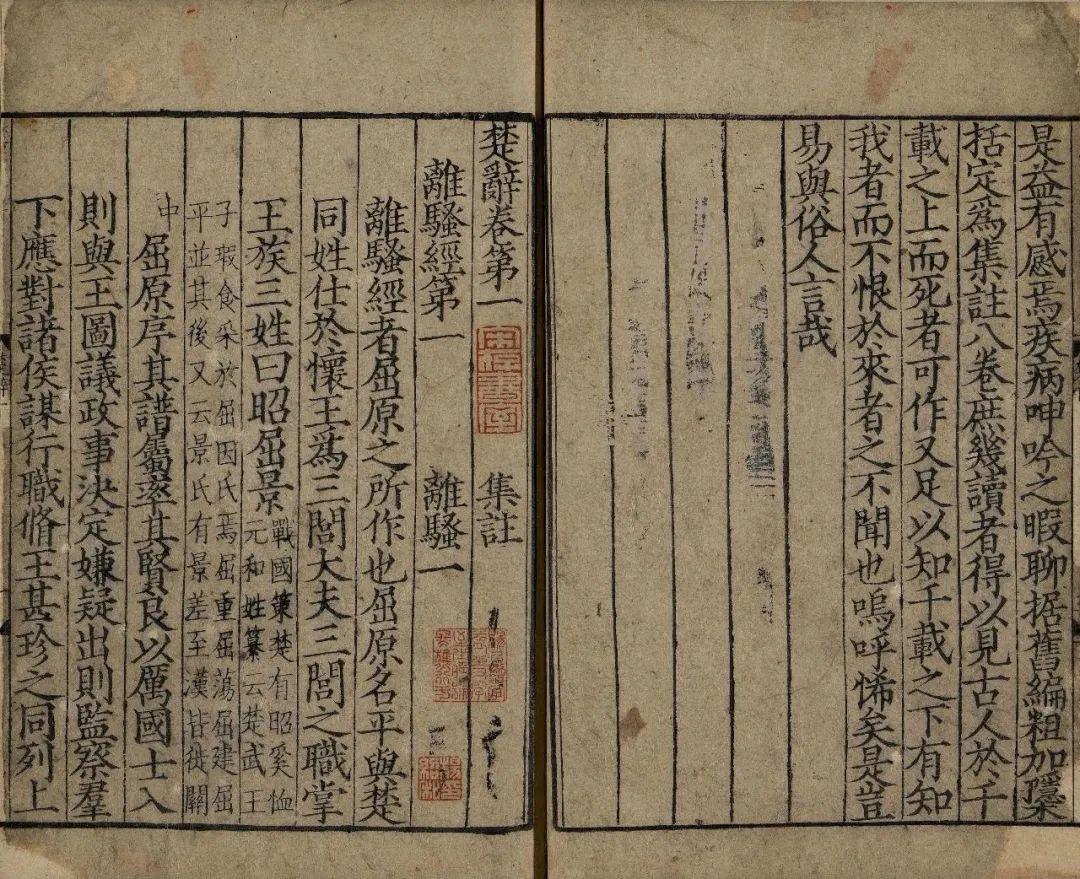 是益有感焉疾病呻吟之暇聊据舊編粗加隱栝
括定爲集註八卷庶幾讀者得以見古人於千
載之上而死者可作又足以知千載之下有知
我者而不恨於來者之不聞也嗚呼悕矣是豈
易與俗人言哉
楚辭卷第一 集註
離騷經第一 離騷一
離騷經者屈原之所作也屈原名平與楚
同姓仕於懷王爲三閭大夫三閭之職掌
王族三姓曰昭屈景 戰國策楚有昭奚恤
元和姓纂云楚武王
子瑕食采於屈因氏焉屈重屈蕩屈建屈
平並其後又云景氏有景差至漢皆徙關
中 屈原序其譜屬率其賢良以厲國士入
則與王圖議政事決定嫌疑出則監察羣
下應對諸侯謀行職脩王甚珍之同列上